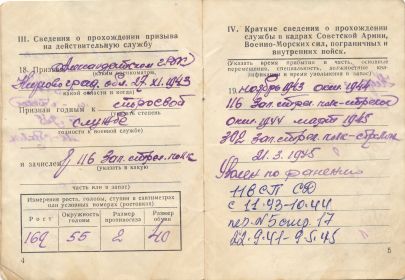 III. Сведения о прохождении призыва
на действительную службу
18. Призван Александрийским ГРВК
(каким военкоматом,
Кировоград. обл. 27.XI.1943
какой области и когда)
Признан годным к строевой
службе
годность к военной службе)
и зачислен в 116 Зап. стрел. полк
(указать в какую
часть или в запас)
Измерения роста, головы, ступни в сантиметрах
или условных номерах (ростовках)
Рост
Окружность
головы
Размер
противогаза
Размер
обуви
169
55
2
40
4
IV. Краткие сведения о прохождении
службы в кадрах Советской Армии,
Военно-Морских сил, пограничных и
внутренних войск.
(Указать время прибытия в часть, основные
перемещения, специальность, должностные ква-
лификации и время увольнения в запас)
19. ноябрь 1943 окт 1944
116 Зап. стрел. полк - стрелок
окт 1944 март 1945
302 Зап. стрел. полк - стрелок
21.3.1945
Уволен по ранению
116 СП СД
с 11.93-10.44
пер. №5 стр. 17
22.9.41-9.5.45
5